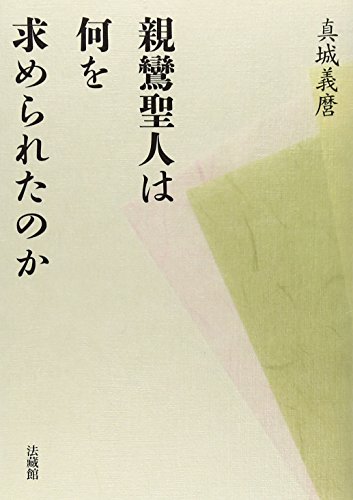 真城義麿
親鸞聖人は
何を
求められたのか
法藏館